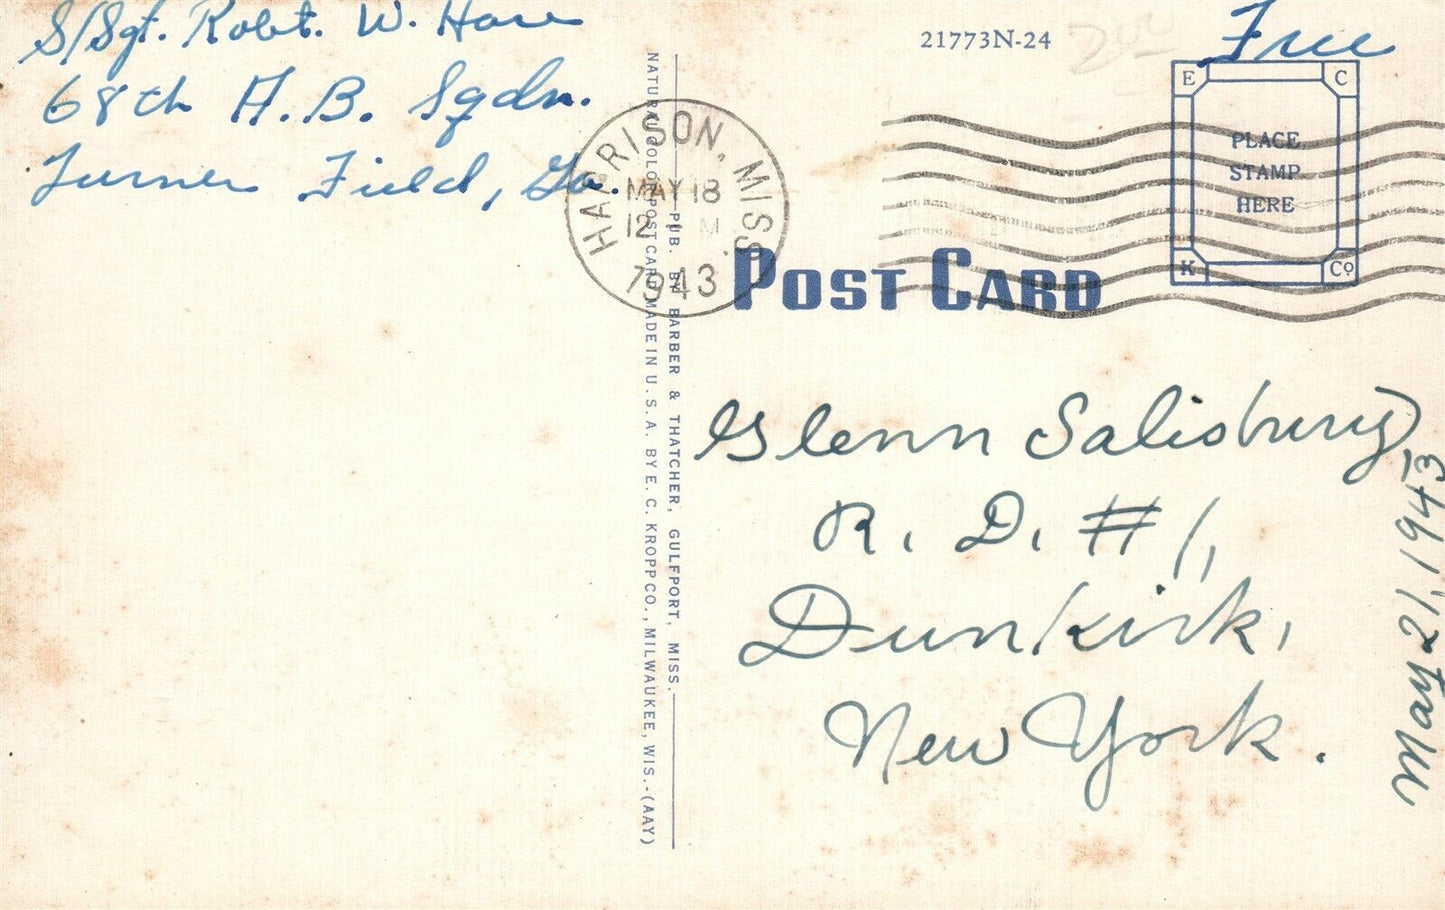 S/Sgt. Robt. W. Hare
68th A. B. Sqdn.
Turner Field, Ga.
21773N-24
Free
E C
PLACE
STAMP
HERE
K Co
HARRISON, MISS.
MAY 18
12 M
1943
POST CARD
NATURAL COLOR POST CARD MADE IN U. S. A. BY E. C. KROPP CO., MILWAUKEE, WIS.-(AAY)
PUB. BY BARBER & THATCHER, GULFPORT, MISS.
Glenn Salisbury,
R. D. #1,
Dunkirk,
New York.
May 21, 1943